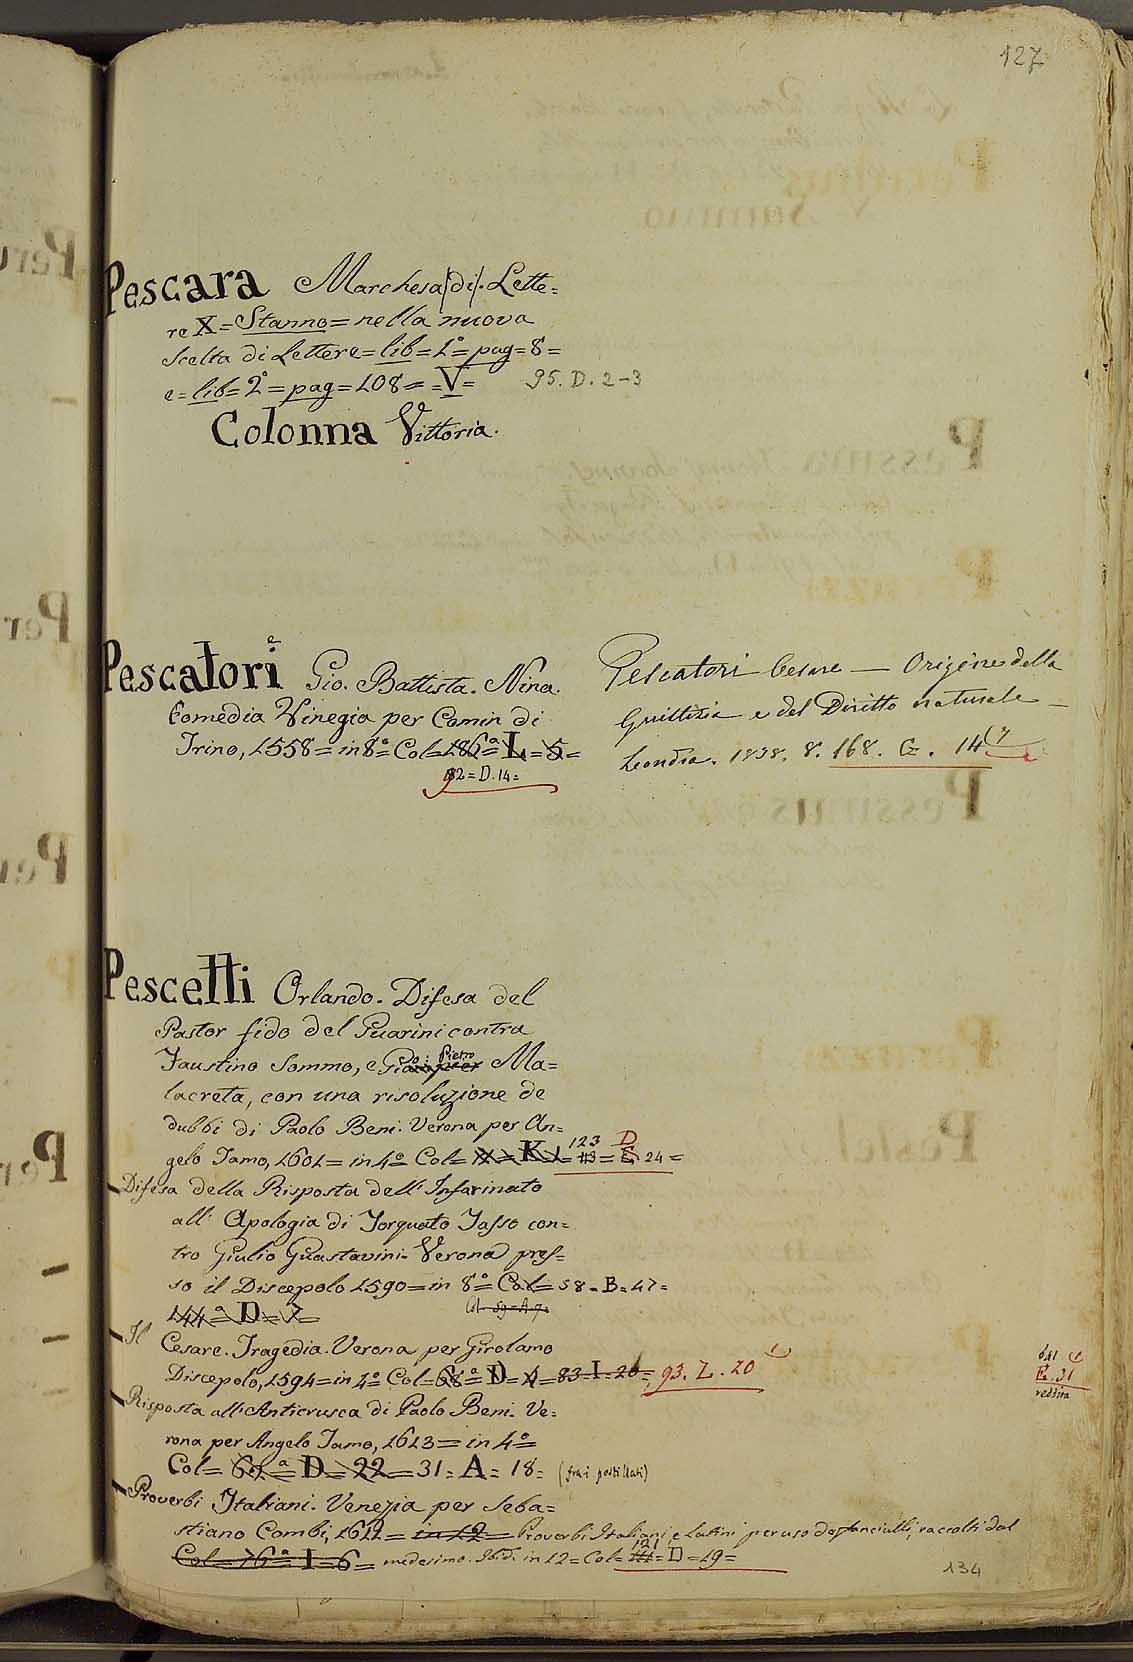 127
Pescara Marchesa (di). Lette=
re X = Stanno = nella nuova
scelta di Lettere = lib = 1º = pag = 8 =
e = lib = 2º = pag = 108 = = V = 95. D. 2-3
Colonna Vittoria.
Pescatori Gio. Battista. Nina.
Comedia Vinegia per Comin di
Trino, 1558 = in 8º = Col = 186ª = L = 5 =
92 = D. 14 =
Pescatori Cesare — Origine della
Giustizia e del Diritto naturale —
Londra. 1838. 8. 168. G. 14
Pescetti Orlando. Difesa del
Pastor fido del Guarini contra
Faustino Sommo, e Gio: Pietro Ma=
lacreta, con una risoluzione de
dubbi di Paolo Beni. Verona per An=
gelo Tamo, 1601 = in 4º Col = K 123 = D 24 =
Difesa della Risposta dell' Infarinato
all' Apologia di Torquato Tasso con=
tro Giulio Guastavini. Verona pres=
so il Discepolo 1590 = in 8º = Col = 58 = B = 47 =
144ª = D = 7 = Col = 59 = A 7 =
Il Cesare. Tragedia. Verona per Girolamo
Discepolo, 1594 = in 4º Col = 68ª = D = 4 = 83 = I = 20 = 93. Z. 20
641
E. 31
Risposta all' Anticrusca di Paolo Beni. Ve=
rona per Angelo Tamo, 1613 = in 4º =
Col = 60ª = D = 22 = 31 = A = 18 = (fra i postillati)
Proverbi Italiani. Venezia per Seba=
stiano Combi, 1611 = in 12 = Proverbi Italiani, e Latini per uso de' fanciulli, raccolti dal
Col = 76ª = I = 6 = medesimo. Ibid. in 12 = Col = 121 = D = 19 =
134